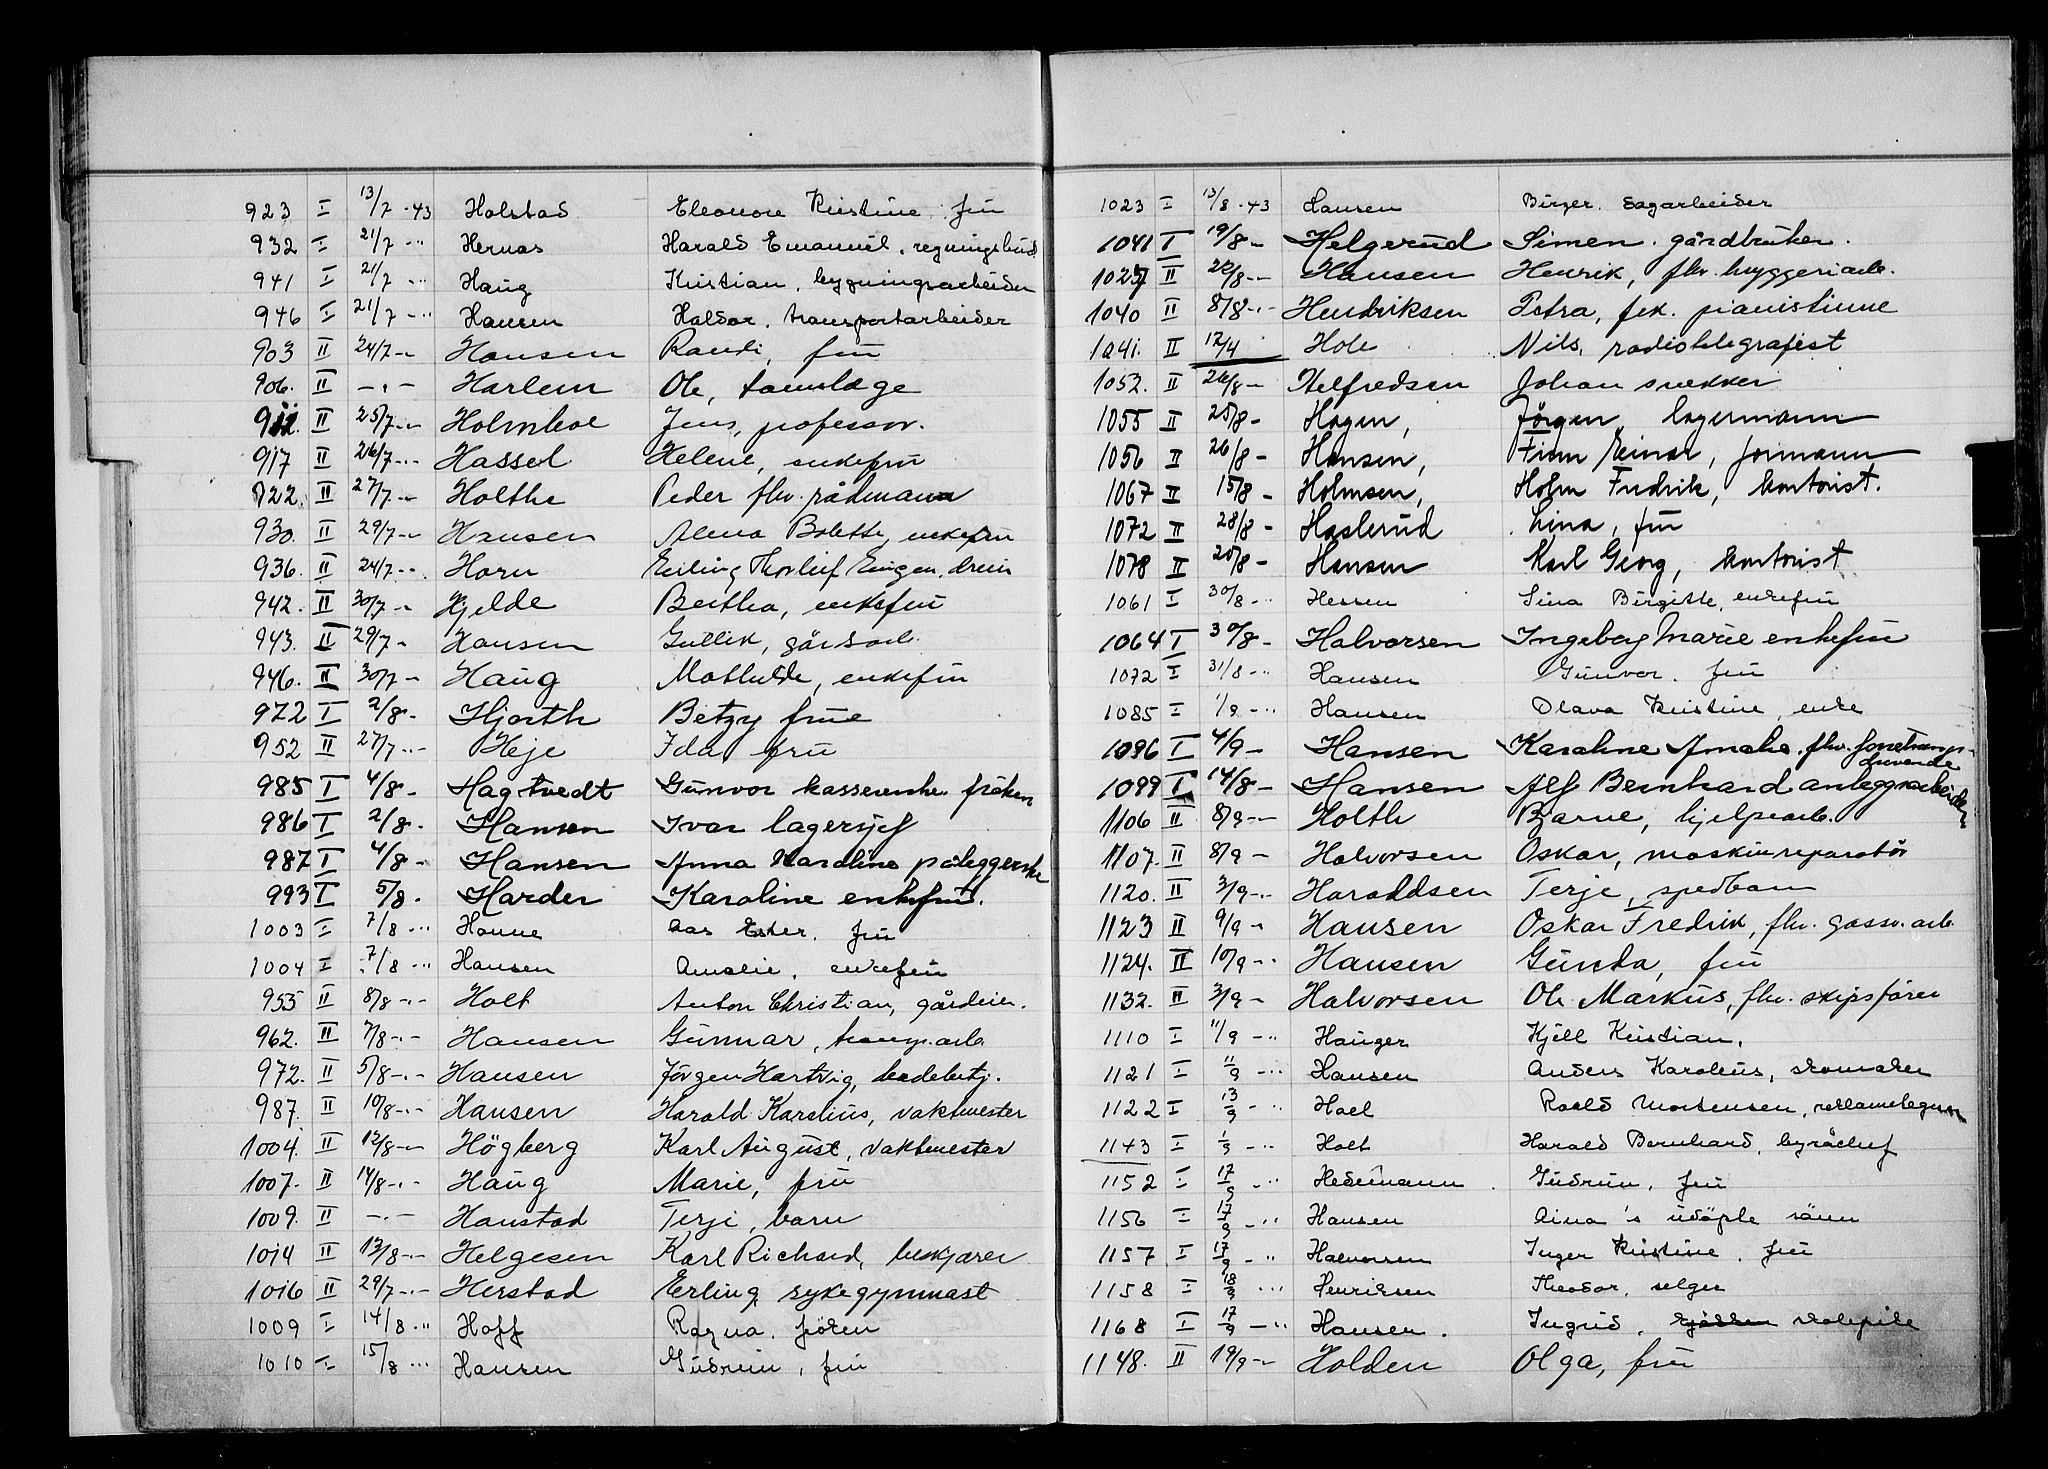 923 I 13/7 -43 Holstad Eleonore Kristine, fru
932 I 21/7 -" Hernas Harald Emanuel, regningsbud
941 I 21/7 -" Haug Kristian, bygningsarbeider
946 I 21/7 -" Hansen Haldor, transportarbeider
903 II 24/7 -" Hansen Randi, fru
906. II -"- Harlem Ole, tannlæge
912. II 25/7 -" Holmboe Jens, professor.
917 II 26/7 -" Hassel Helene, enkefru
922. II 27/7 -" Holthe Peder fhv. rådmann
930. II 29/7 -" Hansen Bolette, enkefru
936. II 24/7 -" Horn Erling Thorleif
942. II 30/7 -" Hjelde Bertha, enkefru
943. II 29/7 - Hansen Gullik, gårdsarb.
946. II 30/7 -" Haug Mathilde, enkefru
972 I 2/8 - Hjorth Betzy frue
952 II 27/7 -" Heje Ida fru
985 I 4/8 - Hagtvedt Gunvor kassererske frøken
986 I 2/8 - Hansen Ivar lagersjef
987 I 4/8 - Hansen Anna Karoline påleggerske
993 I 5/8 - Harder Karoline enkefru.
1003 I 7/8 -" Hanne Aas Ester, fru
1004 I 7/8 -" Hansen Amalie, enkefru
955 II 8/8 -" Holt Anton Christian, gårdeier.
962. II 7/8 -" Hansen Gunnar, transp.arb.
972. II 5/8 -" Hansen Jørgen Hartvig, badebetj.
987. II 10/8 -" Hansen Harald Karelius, vaktmester
1004. II 12/8 -" Högberg Karl August, vaktmester
1007. II 14/8 -" Haug Marie, fru
1009. II -"- Hanstad Terje, barn
1014 II 13/8 -" Helgesen Karl Richard, beskjærer
1016 II 29/7 -" Herstad Erling sykegymnast
1009 I 14/8 -" Hoff Ragna, frøken
1010 I 15/8 -" Hansen Gudrun, fru
1023 I 13/8 -43 Hansen Birger. Sagarbeider
1041 I 19/8 - Helgerud Simen. gårdbruker.
1027 II 22/8 -" Hansen Henrik, fhv. bryggeriarb.
1040 II 8/8 -" Hendriksen Petra, frk. pianistinne
1041. II 12/4 Hole Nils, radiotelegrafist
1052. II 26/8 - Helfredsen Johan snekker
1055 II 25/8 - Hagen, Jörgen, lagermann
1056 II 26/8 - Hansen, Finn Einar, formann
1067 II 15/8 - Holmsen, Holm Fredrik, kontorist.
1072 II 28/8 - Haslerud Lina, fru
1078 II 20/8 - Hansen Karl Georg, kontorist
1061 I 30/8 -" Hessen Lina Birgitte, enkefru
1064 I 30/8 - Halvorsen Ingeborg Marie enkefru
1072 I 31/8 -" Hansen Gunvor. fru
1085 I 1/9 -" Hansen Olava Kristine, enke
1096 I 4/9 - Hansen Karoline Amalie. fhv.
1099 I 14/8 - Hansen Alf Bernhard anleggsarbeider
1106 II 8/9 -" Holth Bjarne, hjelpearb.
1107. II 8/9 - Halvorsen Oskar, maskinreparatør
1120. II 3/9 -" Haraldsen Terje, spedbarn
1123 II 9/9 -" Hansen Oskar Fredrik, fhv. gassv.arb.
1124. II 10/9 -" Hansen Gunda, fru
1132. II 3/9 - Halvorsen Ole Markus, fhv. skipsfører
1110 I 11/9 -" Hauger Kjell Kristian,
1121 I 11/9 -" Hansen Anders Karolius, skomaker
1122 I 13/9 -" Hoel Roald Mortensen, reklametegner
1143 I 1/9 -" Holt Harald Bernhard, byråchef
1152 I 17/9 -" Hedemann Gudrun, fru
1156 I 17/9 -" Hansen Aina 's udøpte sønn
1157 I 17/9 -" Halvorsen Inger Kristine, fru
1158 I 18/9 -" Henriksen Theodor, selger
1168 I 17/9 -" Hansen. Ingrid, skolepike
1148. II 19/9 -" Holden Olga, fru